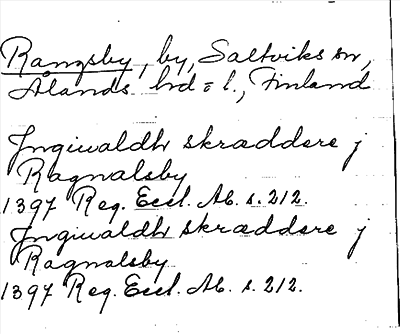 Rangsby, by, Saltviks sn,
Ålands hd o. l., Finland
Ingiwaldh skræddere j
Ragnalsby
1397 Reg. Eccl. Ab. s. 212.
Ingiwaldh skræddere j
Ragnalsby
1397 Reg. Eccl. Ab. s. 212.